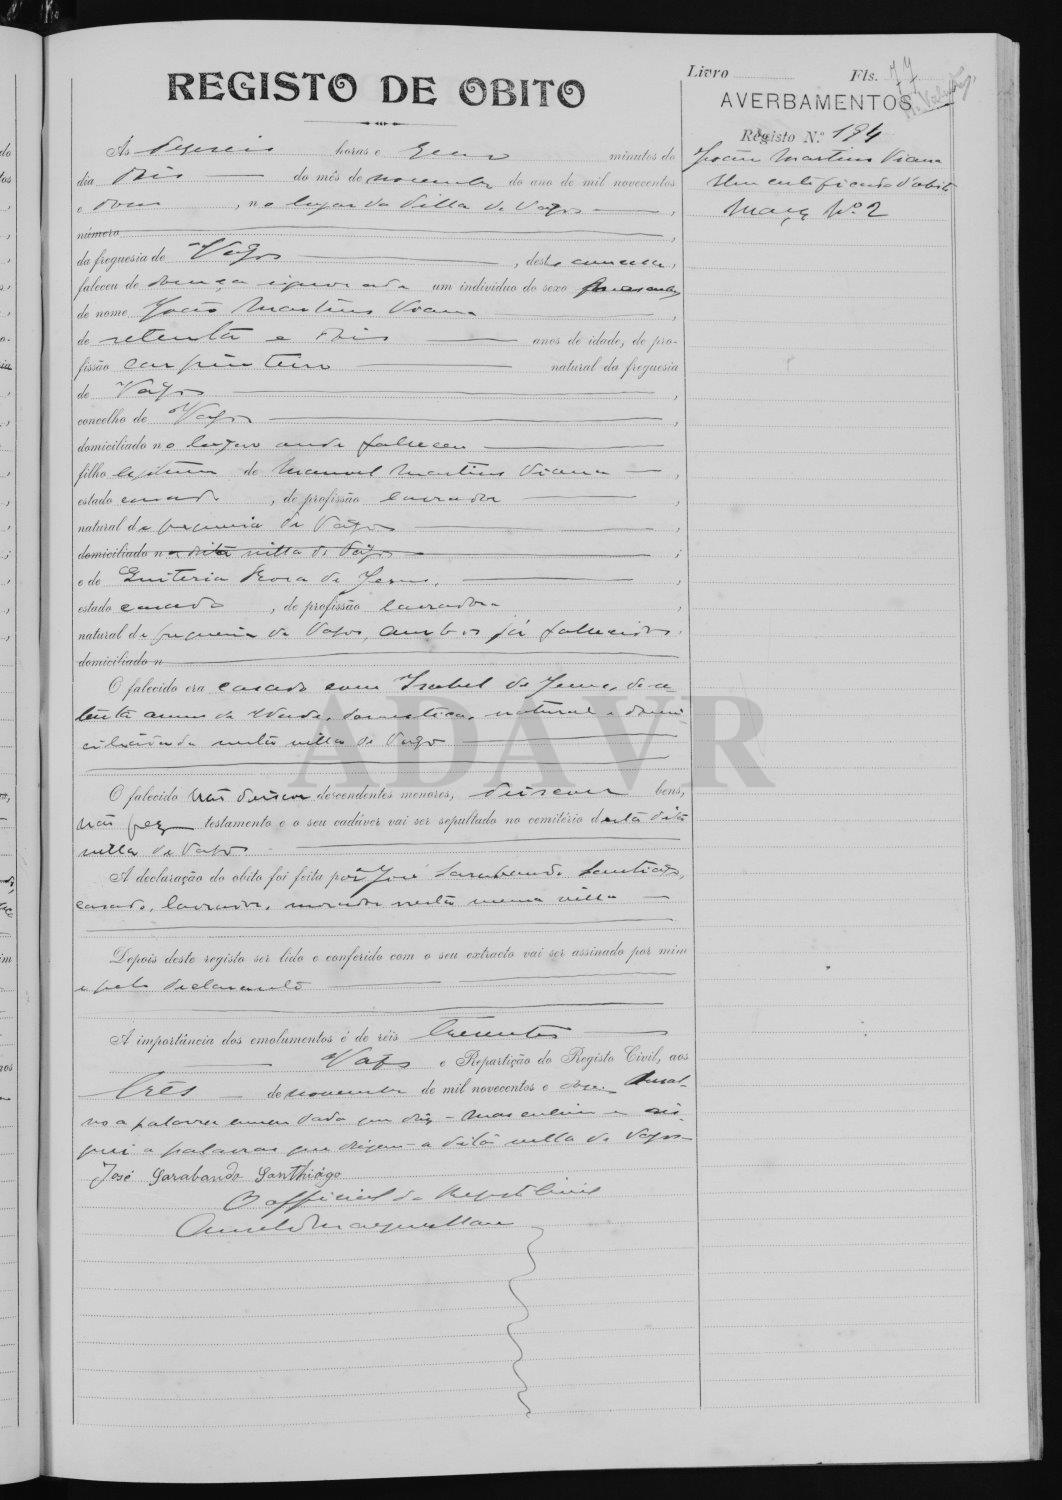 REGISTO DE OBITO
Ás deseseis horas e zero minutos do
dia dois do mês de novembro do ano de mil novecentos
e doze, no lugar da Villa de Vagos,
número
da freguesia de Vagos, deste concelho,
faleceu de doença ignorada um individuo do sexo masculino
de nome João Martins Viana
de setenta e dois anos de idade, de pro-
fissão carpinteiro natural da freguesia
de Vagos,
concelho de Vagos,
domiciliado no lugar onde faleceu
filho legitimo de Manuel Martins Viana,
estado casado, de profissão lavrador
natural da freguesia de Vagos,
domiciliado na dita villa de Vagos;
e de Quiteria Rosa de Jesus,
estado casada, de profissão lavradora,
natural da freguesia de Vagos, ambos já fallecidos.
domiciliado n
O falecido era casado com Isabel de Jesus, de
tenta annos de idade, domestica, natural e domi
ciliada nesta villa de Vagos
O falecido não deixou descendentes menores, deixou bens,
não fez testamento e o seu cadáver vai ser sepultado no cemitério desta dita
villa de Vagos
A declaração do obito foi feita por José Sarabando Santiago,
casado, lavrador, morador nesta mesma villa
Depois deste registo ser lido e conferido com o seu extracto vai ser assinado por mim
e pelo declarante
A importância dos emolumentos é de réis trezentos
Vagos e Repartição do Registo Civil, aos
três de novembro de mil novecentos e doze. Resal-
vo a palavra emendada que diz - masculino e
a palavras que dizem - a dita villa de Vagos
José Sarabando Santhiágo
O official do Registo Civil
Livro Fls. 77
AVERBAMENTOS
Registo N.º 194
João Martins Viana
Um certificado d'obito
Maço Nº 2
ADAVR